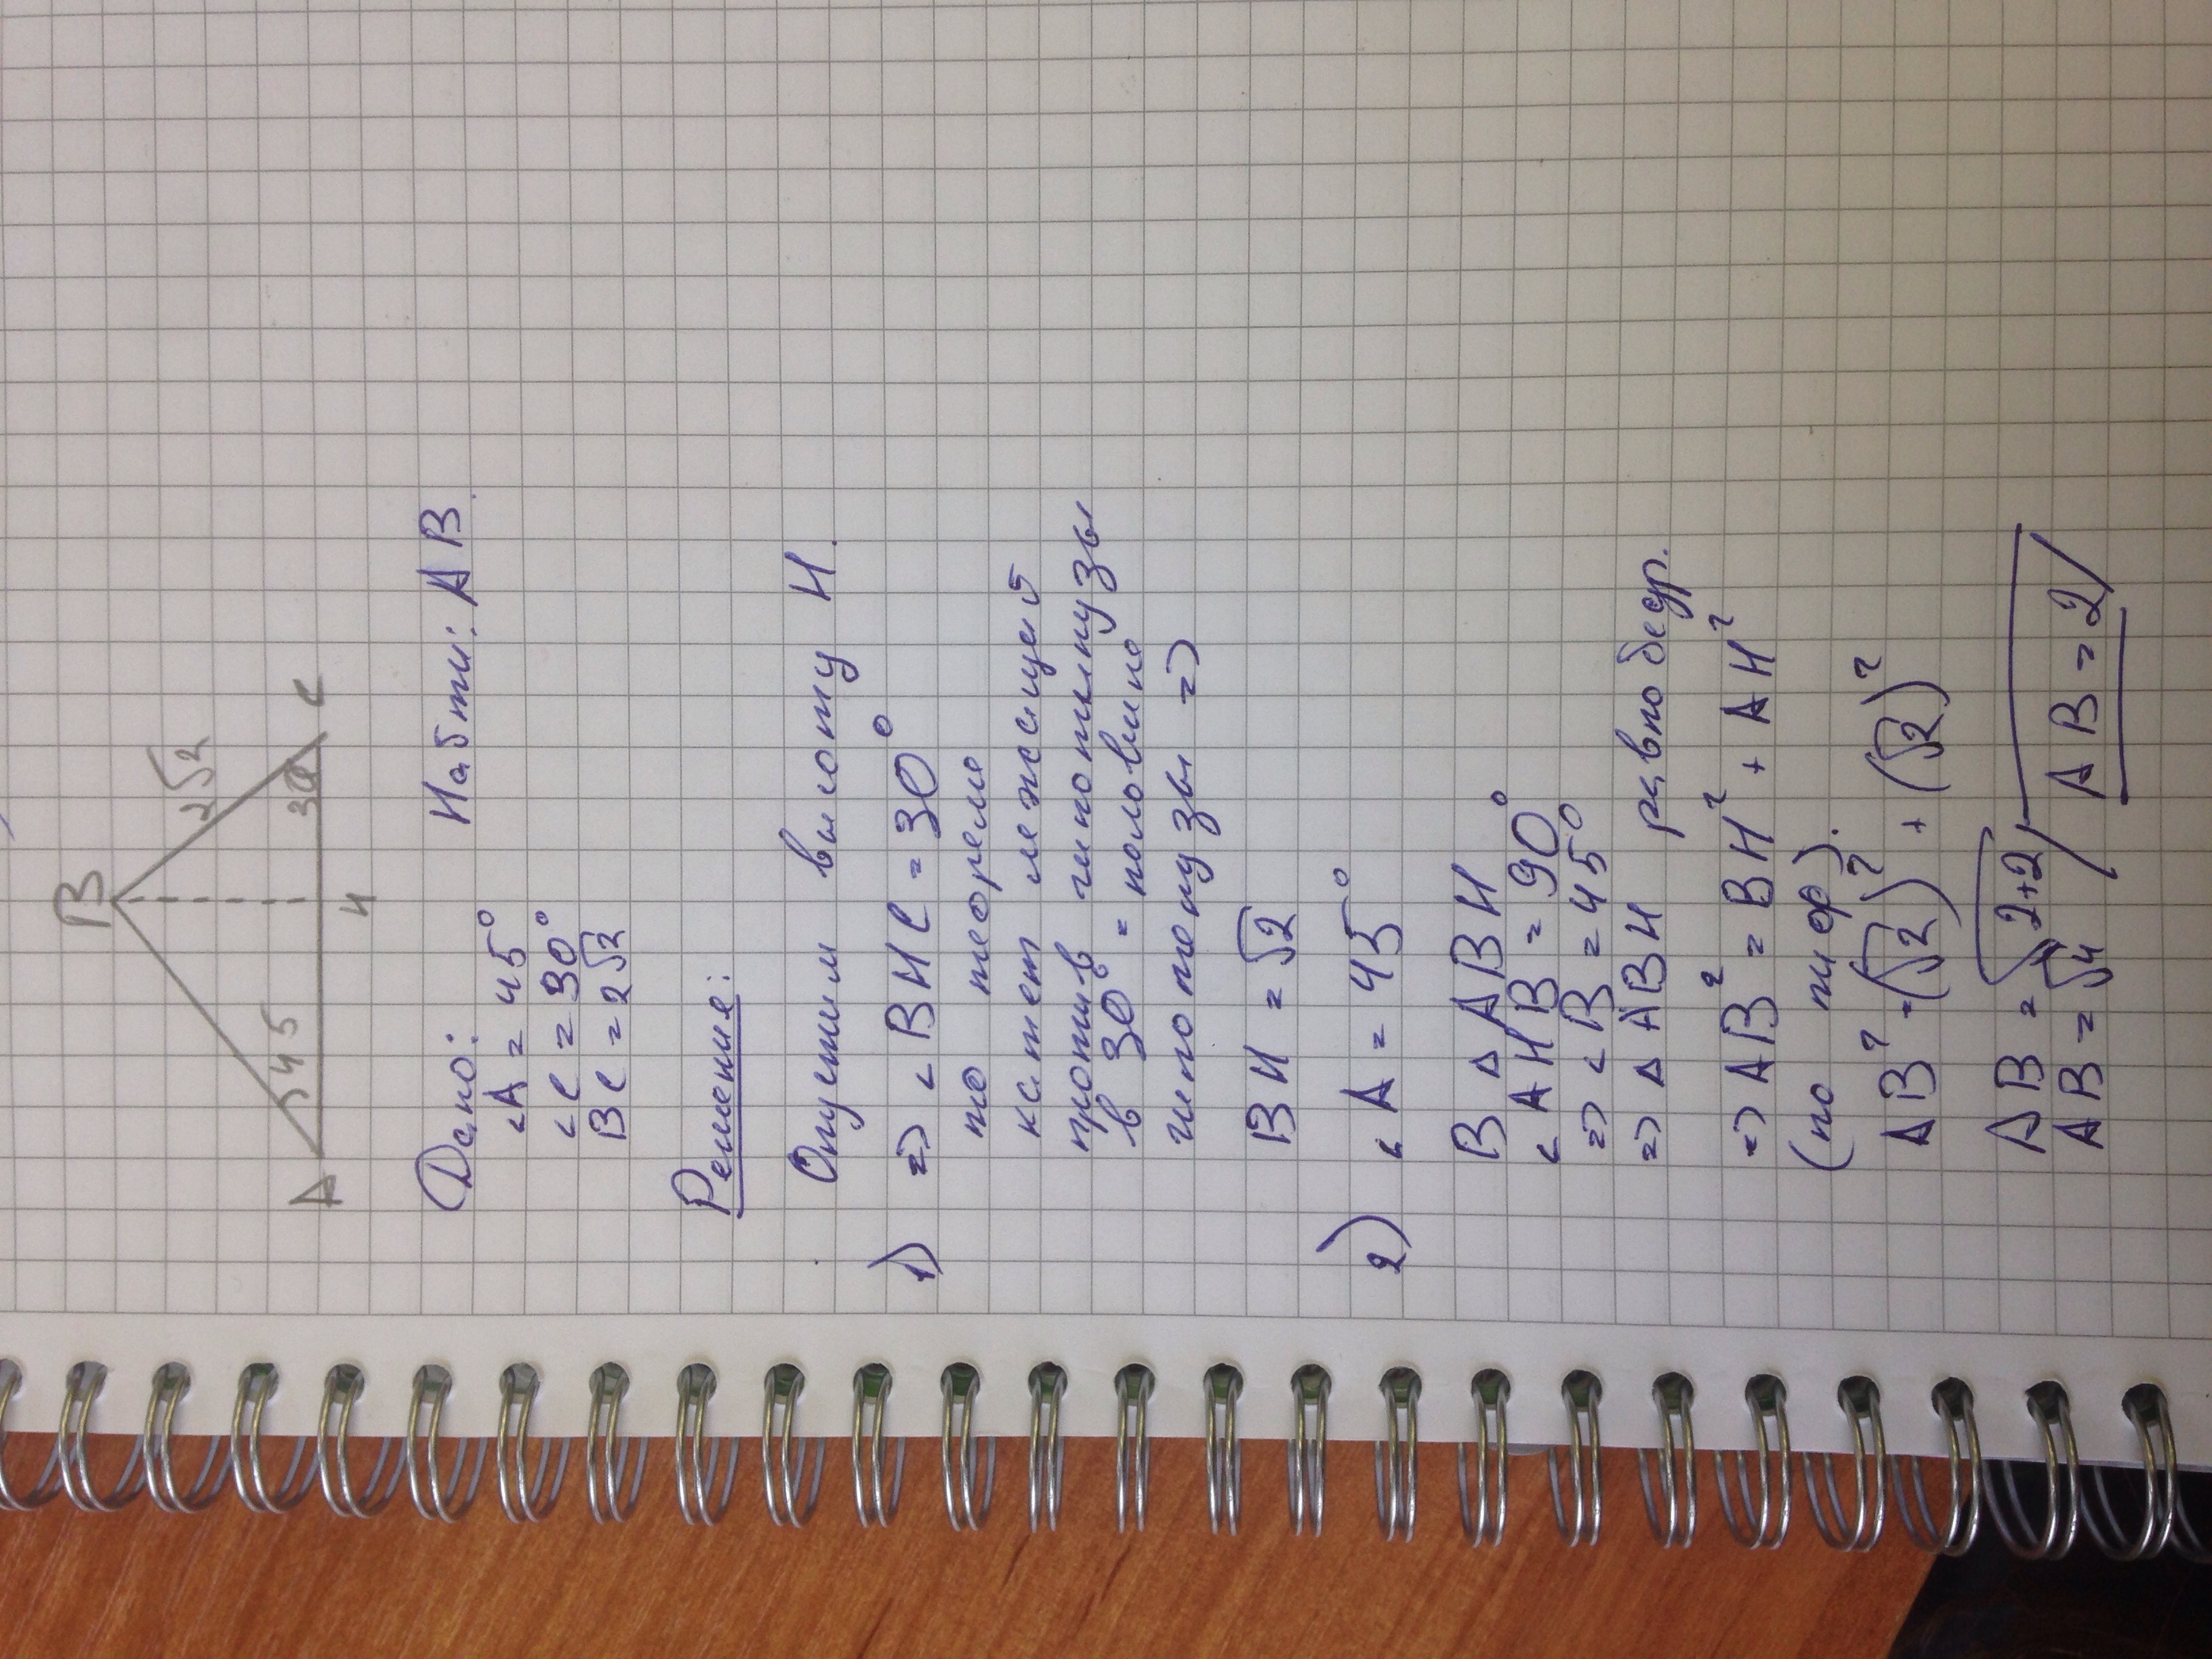 B
2√2
45
30
A
H
C
Дано:
∠A = 45°
∠C = 30°
BC = 2√2
Найти: AB.
Решение:
Опустим высоту H.
1) => ∠BHC = 30°
по теореме
катет лежащей
против гипотенузы
в 30° = половине
гипотенузы =>
BH = √2
2) ∠A = 45°
В Δ ABH
∠AHB = 90°
=> ∠B = 45°
=> Δ ABH равнобедр.
=> AB² = BH² + AH²
(по пиф).
AB² = (√2)² + (√2)²
AB = √2+2
AB = √4
AB = 2